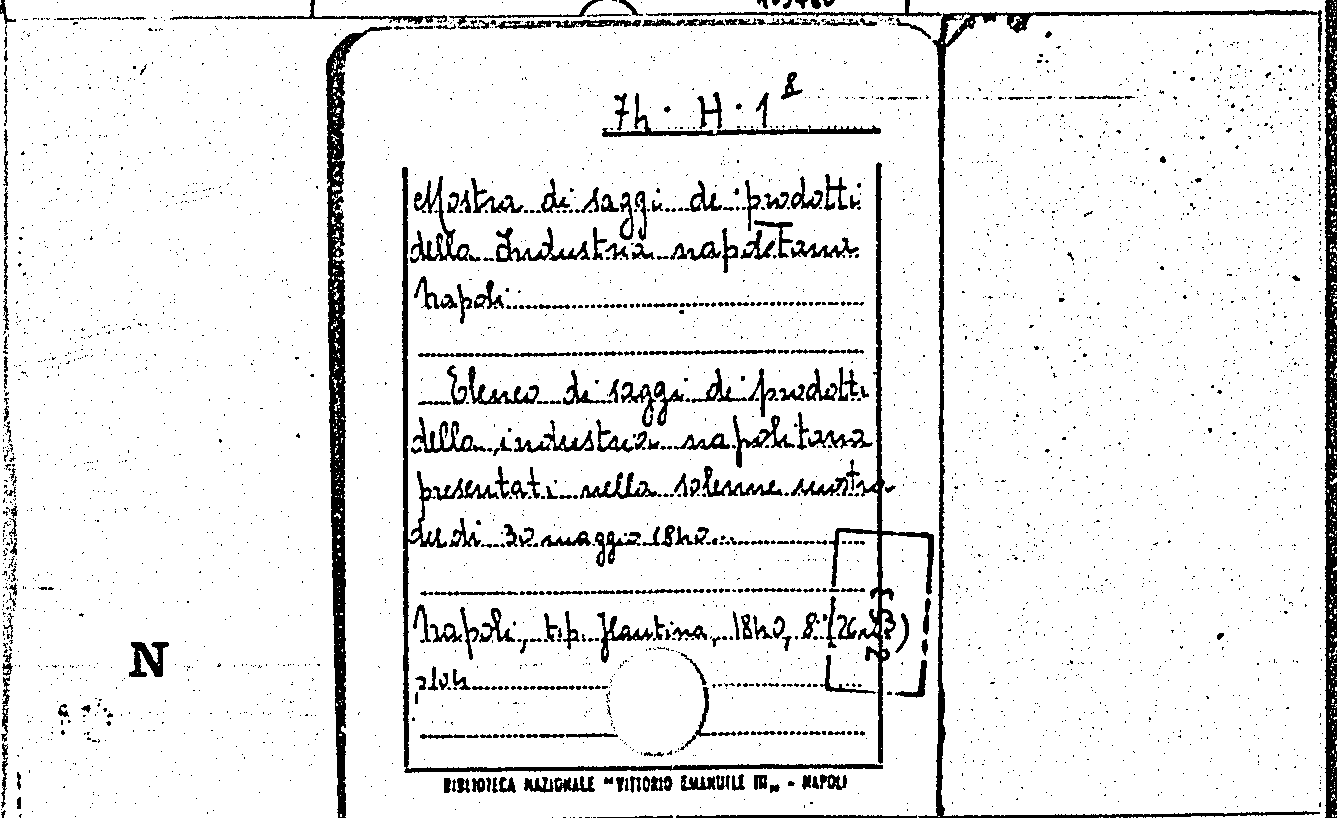 74 · H · 1 8
Mostra di saggi di prodotti
della Industria napoletana
Napoli
Elenco di saggi di prodotti
della industria napolitana
presentati nella solenne mostra
del di 30 maggio 1840...
Napoli, tip. Flautina, 1840, 8°
N
BIBLIOTECA NAZIONALE "VITTORIO EMANUELE III„ - NAPOLI